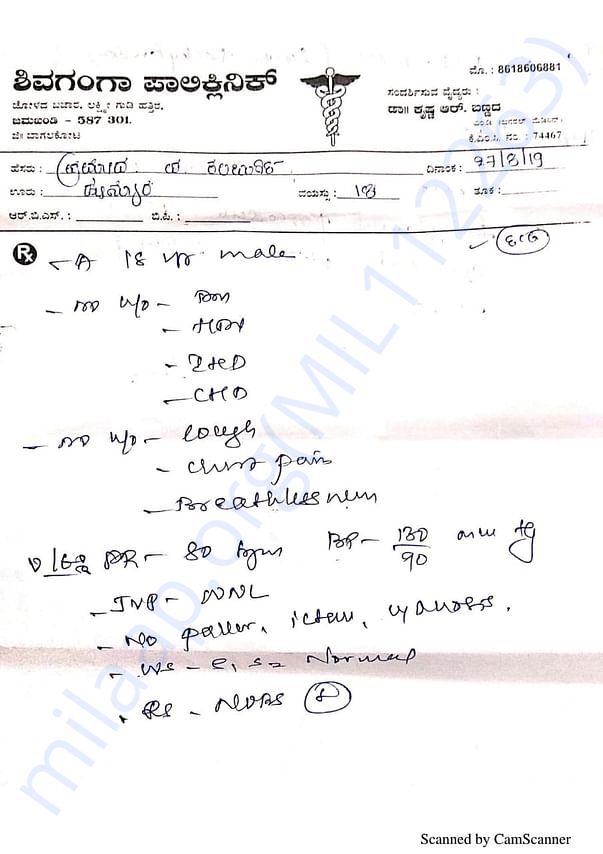 ಶಿವಗಂಗಾ ಪಾಲಿಕ್ಲಿನಿಕ್
ಜೋಳದ ಬಜಾರ, ಲಕ್ಷ್ಮೀ ಗುಡಿ ಹತ್ತಿರ,
ಜಮಖಂಡಿ - 587 301.
ಜಿ॥ ಬಾಗಲಕೋಟ
ಮೊ. : 8618606881
ಸಂದರ್ಶಿಸುವ ವೈದ್ಯರು :
ಡಾ॥ ಕೃಷ್ಣ ಆರ್. ಬಣ್ಣದ
ಕೆ.ಎಂ.ಸಿ. ನಂ. : 74467
ಹೆಸರು :
ದಿನಾಂಕ : 27/8/19
ಊರು : ವಯಸ್ಸು : 18 ತೂಕ :
ಆರ್.ಬಿ.ಎಸ್. : ಬಿ.ಪಿ. :
ECG
Rx - A 18 yr male
- no h/o - DM
- HTN
- IHD
- CHD
- no h/o - cough
- chest pain
- Breathlessness
PR - 80 bpm BP - 130/90 mm Hg
- JVP - WNL
- No pallor, icterus, cyanosis.
- CVS - S1 S2 Normal
- RS - NVBS
milaap.org(MIL112263)
Scanned by CamScanner